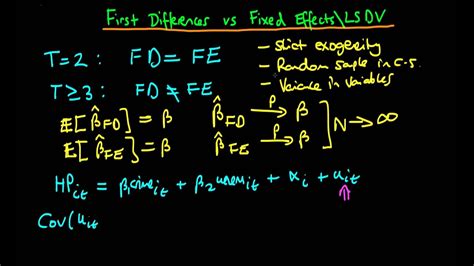 First Differences vs Fixed Effects\LSDV
T=2: FD = FE
T≥3: FD ≠ FE
- Strict exogeneity
- Random sample in C-S.
- Variance in Variables
E[β̂_FD] = β β̂_FD →^p β
E[β̂_FE] = β β̂_FE →^p β ] N → ∞
HP_it = β₁crime_it + β₂unem_it + α_i + u_it
Cov(u_it